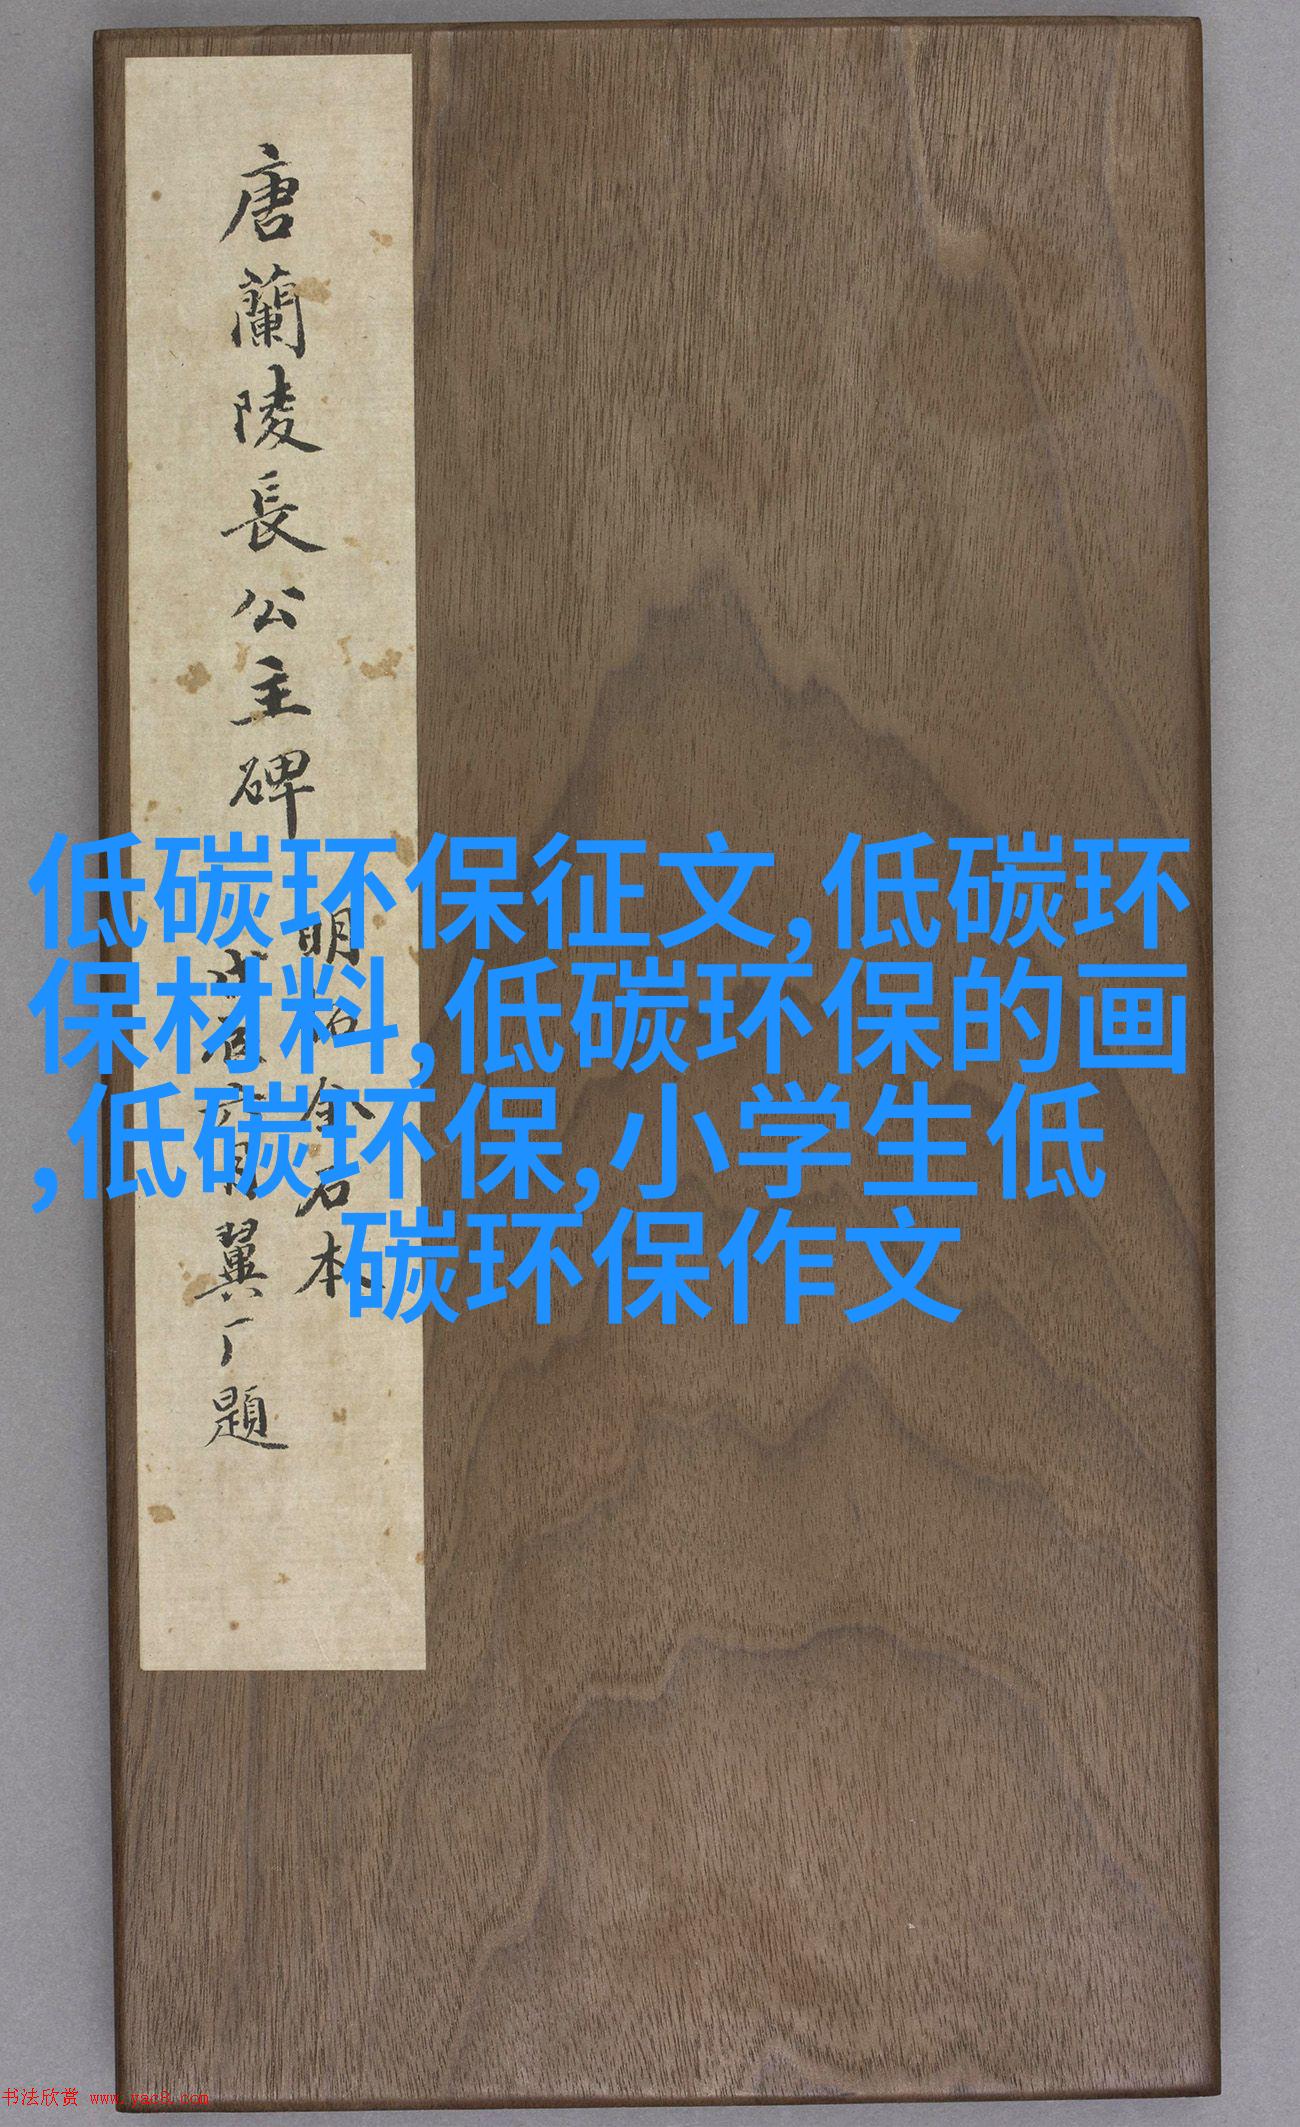 唐蘭陵長公主碑
明拓金石本
翼厂題
低碳环保征文,低碳环
保材料,低碳环保的画
,低碳环保,小学生低
碳环保作文
书法欣赏 www.yac8.com